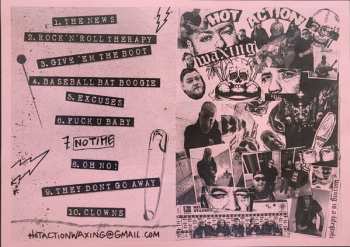 1. THE NEWS
2. ROCK'N'ROLL THERAPY
3. GIVE 'EM THE BOOT
4. BASEBALL BAT BOOGIE
5. EXCUSES
6. FUCK U BABY
7. NO TIME
8. OH NO!
9. THEY DONT GO AWAY
10. CLOWNS
HOTACTIONWAXING@GMAIL.COM
HOT ACTION
waxing